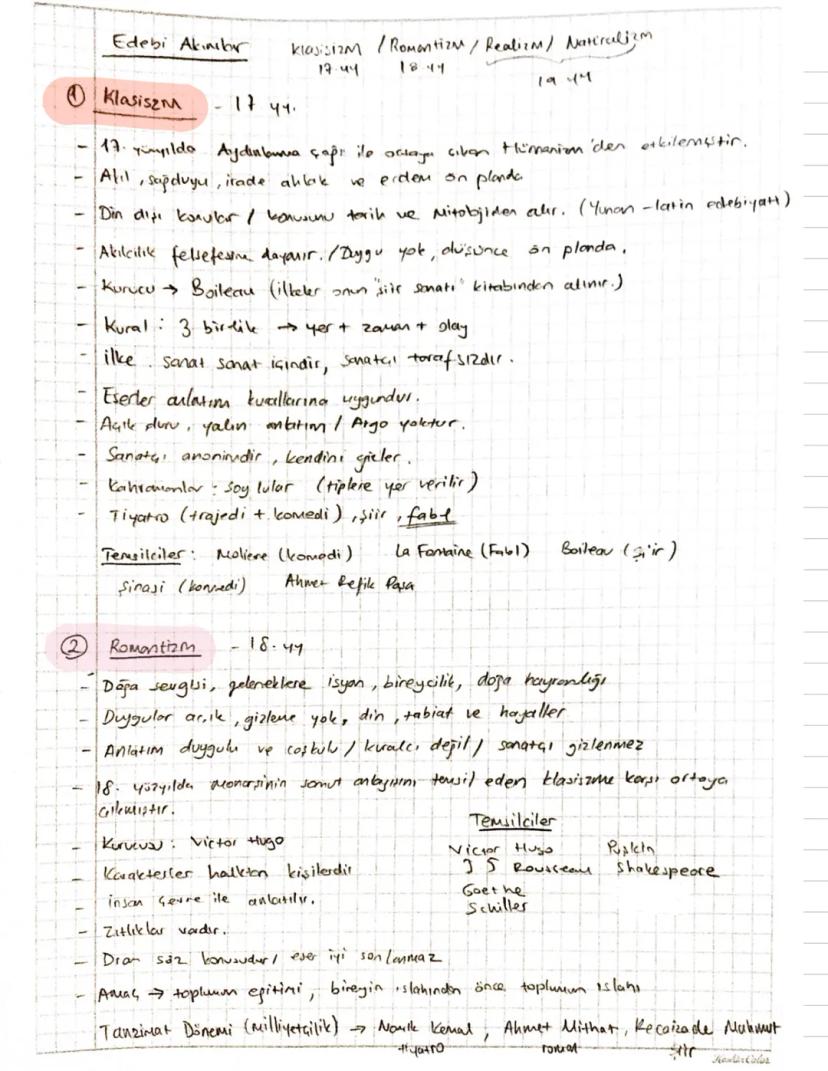 Edebi Akımlar   Klasisizm / Romantizm / Realizm / Natüralizm
17.yy   18.yy   19 yy
① Klasiszm - 17 yy.
- 17. yüzyılda Aydınlanma çağı ile ortaya çıkan Hümanizm'den etkilemiştir.
- Akıl, sağduyu, irade ahlak ve erdem ön planda
- Din dışı konular / konusunu tarih ve mitolojiden alır. (Yunan-latin edebiyatı)
- Akılcılık felsefesine dayanır. / Duygu yok, düşünce ön planda.
- Kurucu → Boileau (ilkeler onun "şiir sanatı" kitabından alınır.)
- Kural: 3 birlik → yer + zaman + olay
- ilke. sanat sanat içindir, sanatçı tarafsızdır.
- Eserler anlatım kurallarına uygundur.
- Açık duru, yalın anlatım / Argo yoktur.
- Sanatçı anonimdir, kendini gizler.
- Kahramanlar: soylular (tiplere yer verilir)
- Tiyatro (trajedi + komedi), şiir, fabl
Temsilciler: Moliere (komedi)   La Fontaine (Fabl)   Boileau (şiir)
Şinasi (komedi)   Ahmet Refik Paşa
② Romantizm - 18.yy
- Doğa sevgisi, geleneklere isyan, bireycilik, doğa hayranlığı
- Duygular açık, gizleme yok, din, tabiat ve hayaller
- Anlatım duygulu ve coşkulu / kuralcı değil / sanatçı gizlenmez
- 18. yüzyılda monarşinin somut anlayışını temsil eden klasiszme karşı ortaya
çıkmıştır.
- Kurucusu: Victor Hugo
- Karakterler halktan kişilerdir
- insan çevre ile anlatılır.
- Zıtlıklar vardır.
Temsilciler
Victor Hugo   Puşkin
J J Rousseau   Shakespeare
Goethe
Schiller
- Dram söz konusudur / eser iyi sonlanmaz
- Amaç → toplumun eğitimi, bireyin ıslahından önce toplumun ıslahı
Tanzimat Dönemi (milliyetçilik) → Namık Kemal, Ahmet Mithat, Recaizade Mahmut
tiyatro   roman   şiir